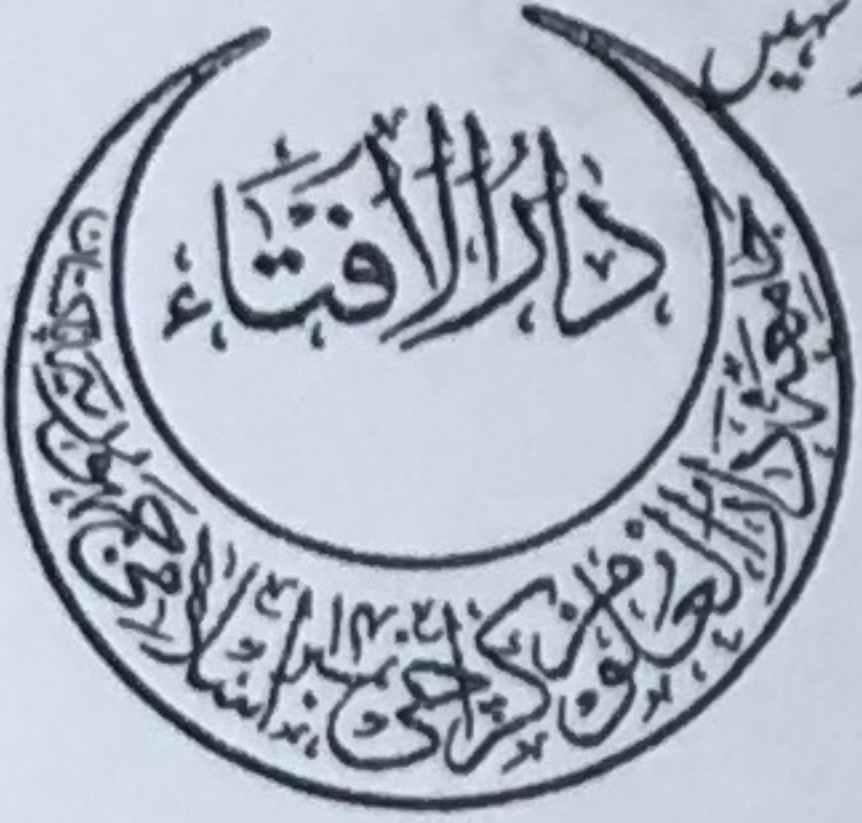 نہیں
دَارُالْاِفْتَاء
جامعہ دارالعلوم کراچی نمبر ۱۴ اسلامی جمہوریہ پاکستان